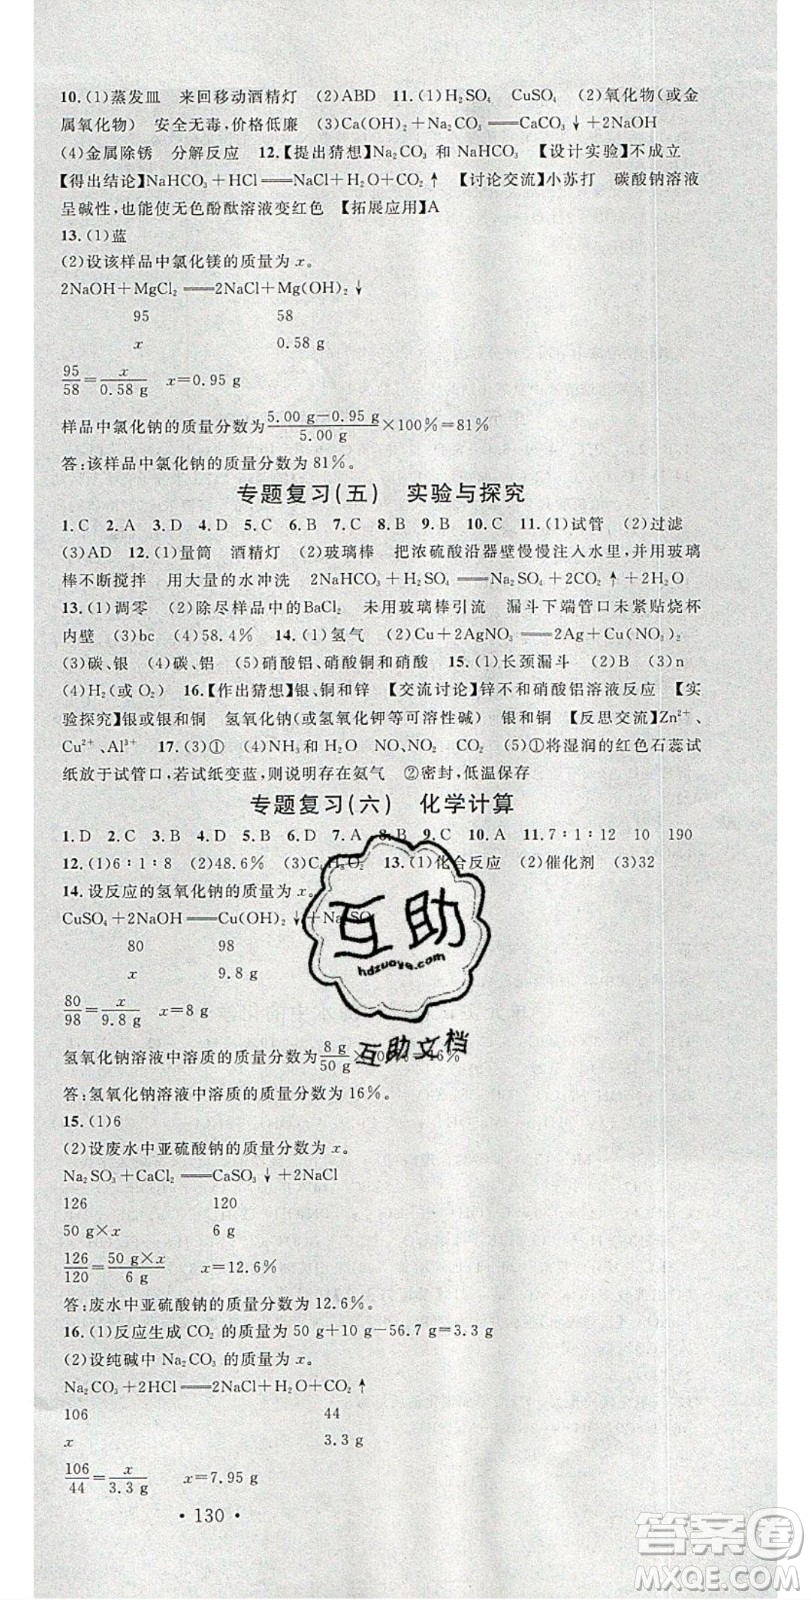 10.(1)蒸发皿　来回移动酒精灯　(2)ABD　11.(1)H₂SO₄　CuSO₄　(2)氧化物(或金
属氧化物)　安全无毒,价格低廉　(3)Ca(OH)₂+Na₂CO₃══CaCO₃↓+2NaOH
(4)金属除锈　分解反应　12.【提出猜想】Na₂CO₃和NaHCO₃　【设计实验】不成立
【得出结论】NaHCO₃+HCl══NaCl+H₂O+CO₂↑　【讨论交流】小苏打　碳酸钠溶液
呈碱性,也能使无色酚酞溶液变红色　【拓展应用】A
13.(1)蓝
(2)设该样品中氯化镁的质量为x。
2NaOH+MgCl₂══2NaCl+Mg(OH)₂↓
95　58
x　0.58 g
95/58=x/0.58 g　x=0.95 g
样品中氯化钠的质量分数为(5.00 g−0.95 g)/5.00 g×100%=81%
答:该样品中氯化钠的质量分数为81%。
专题复习(五)　实验与探究
1.C　2.A　3.D　4.D　5.C　6.C　7.D　8.B　9.B　10.C　11.(1)试管　(2)过滤
(3)AD　12.(1)量筒　酒精灯　(2)玻璃棒　把浓硫酸沿器壁慢慢注入水里,用玻璃
棒不断搅拌　用大量的水冲洗　2NaHCO₃+H₂SO₄══Na₂SO₄+2CO₂↑+2H₂O
13.(1)调零　(2)除尽样品中的BaCl₂　未用玻璃棒引流　漏斗下端管口未紧贴烧杯
内壁　(3)bc　(4)58.4%　14.(1)氢气　(2)Cu+2AgNO₃══2Ag+Cu(NO₃)₂
(3)碳、银　(4)碳、铝　(5)硝酸铝、硝酸铜和硝酸银　15.(1)长颈漏斗　(2)B　(3)n
(4)H₂(或O₂)　16.【作出猜想】银、铜和锌　【交流讨论】锌不和硝酸铝溶液反应　【实
验探究】银或银和铜　氢氧化钠(或氢氧化钾等可溶性碱)　银和铜　【反思交流】Zn²⁺、
Cu²⁺、Al³⁺　17.(3)①　(4)NH₃和H₂O　NO₂　NO₂　(5)①将湿润的红色石蕊试
纸放于试管口,若试纸变蓝,则说明存在氨气　②密封,低温保存
专题复习(六)　化学计算
1.D　2.C　3.C　4.B　5.B　6.D　7.A　8.B　9.C　10.A　11.7∶1∶12　10　190
12.(1)6∶1∶8　(2)48.6%　(3)C　13.(1)化合反应　(2)催化剂　(3)32
14.设反应的氢氧化钠的质量为x。
CuSO₄+2NaOH══Cu(OH)₂↓+Na₂SO₄
80　98
x　9.8 g
80/98=x/9.8 g　x=8 g
氢氧化钠溶液中溶质的质量分数为8 g/50 g×100%=16%
答:氢氧化钠溶液中溶质的质量分数为16%。
15.(1)6
(2)设废水中亚硫酸钠的质量分数为x。
Na₂SO₃+CaCl₂══CaSO₃↓+2NaCl
126　120
50 g×x　6 g
126/120=50 g×x/6 g　x=12.6%
答:废水中亚硫酸钠的质量分数为12.6%。
16.(1)反应生成CO₂的质量为50 g+10 g−56.7 g=3.3 g
(2)设纯碱中Na₂CO₃的质量为x。
Na₂CO₃+2HCl══2NaCl+H₂O+CO₂↑
106　44
x　3.3 g
106/44=x/3.3 g　x=7.95 g
• 130 •
互助
hdzuoye.com
互助文档
答案圈
MXQE.COM